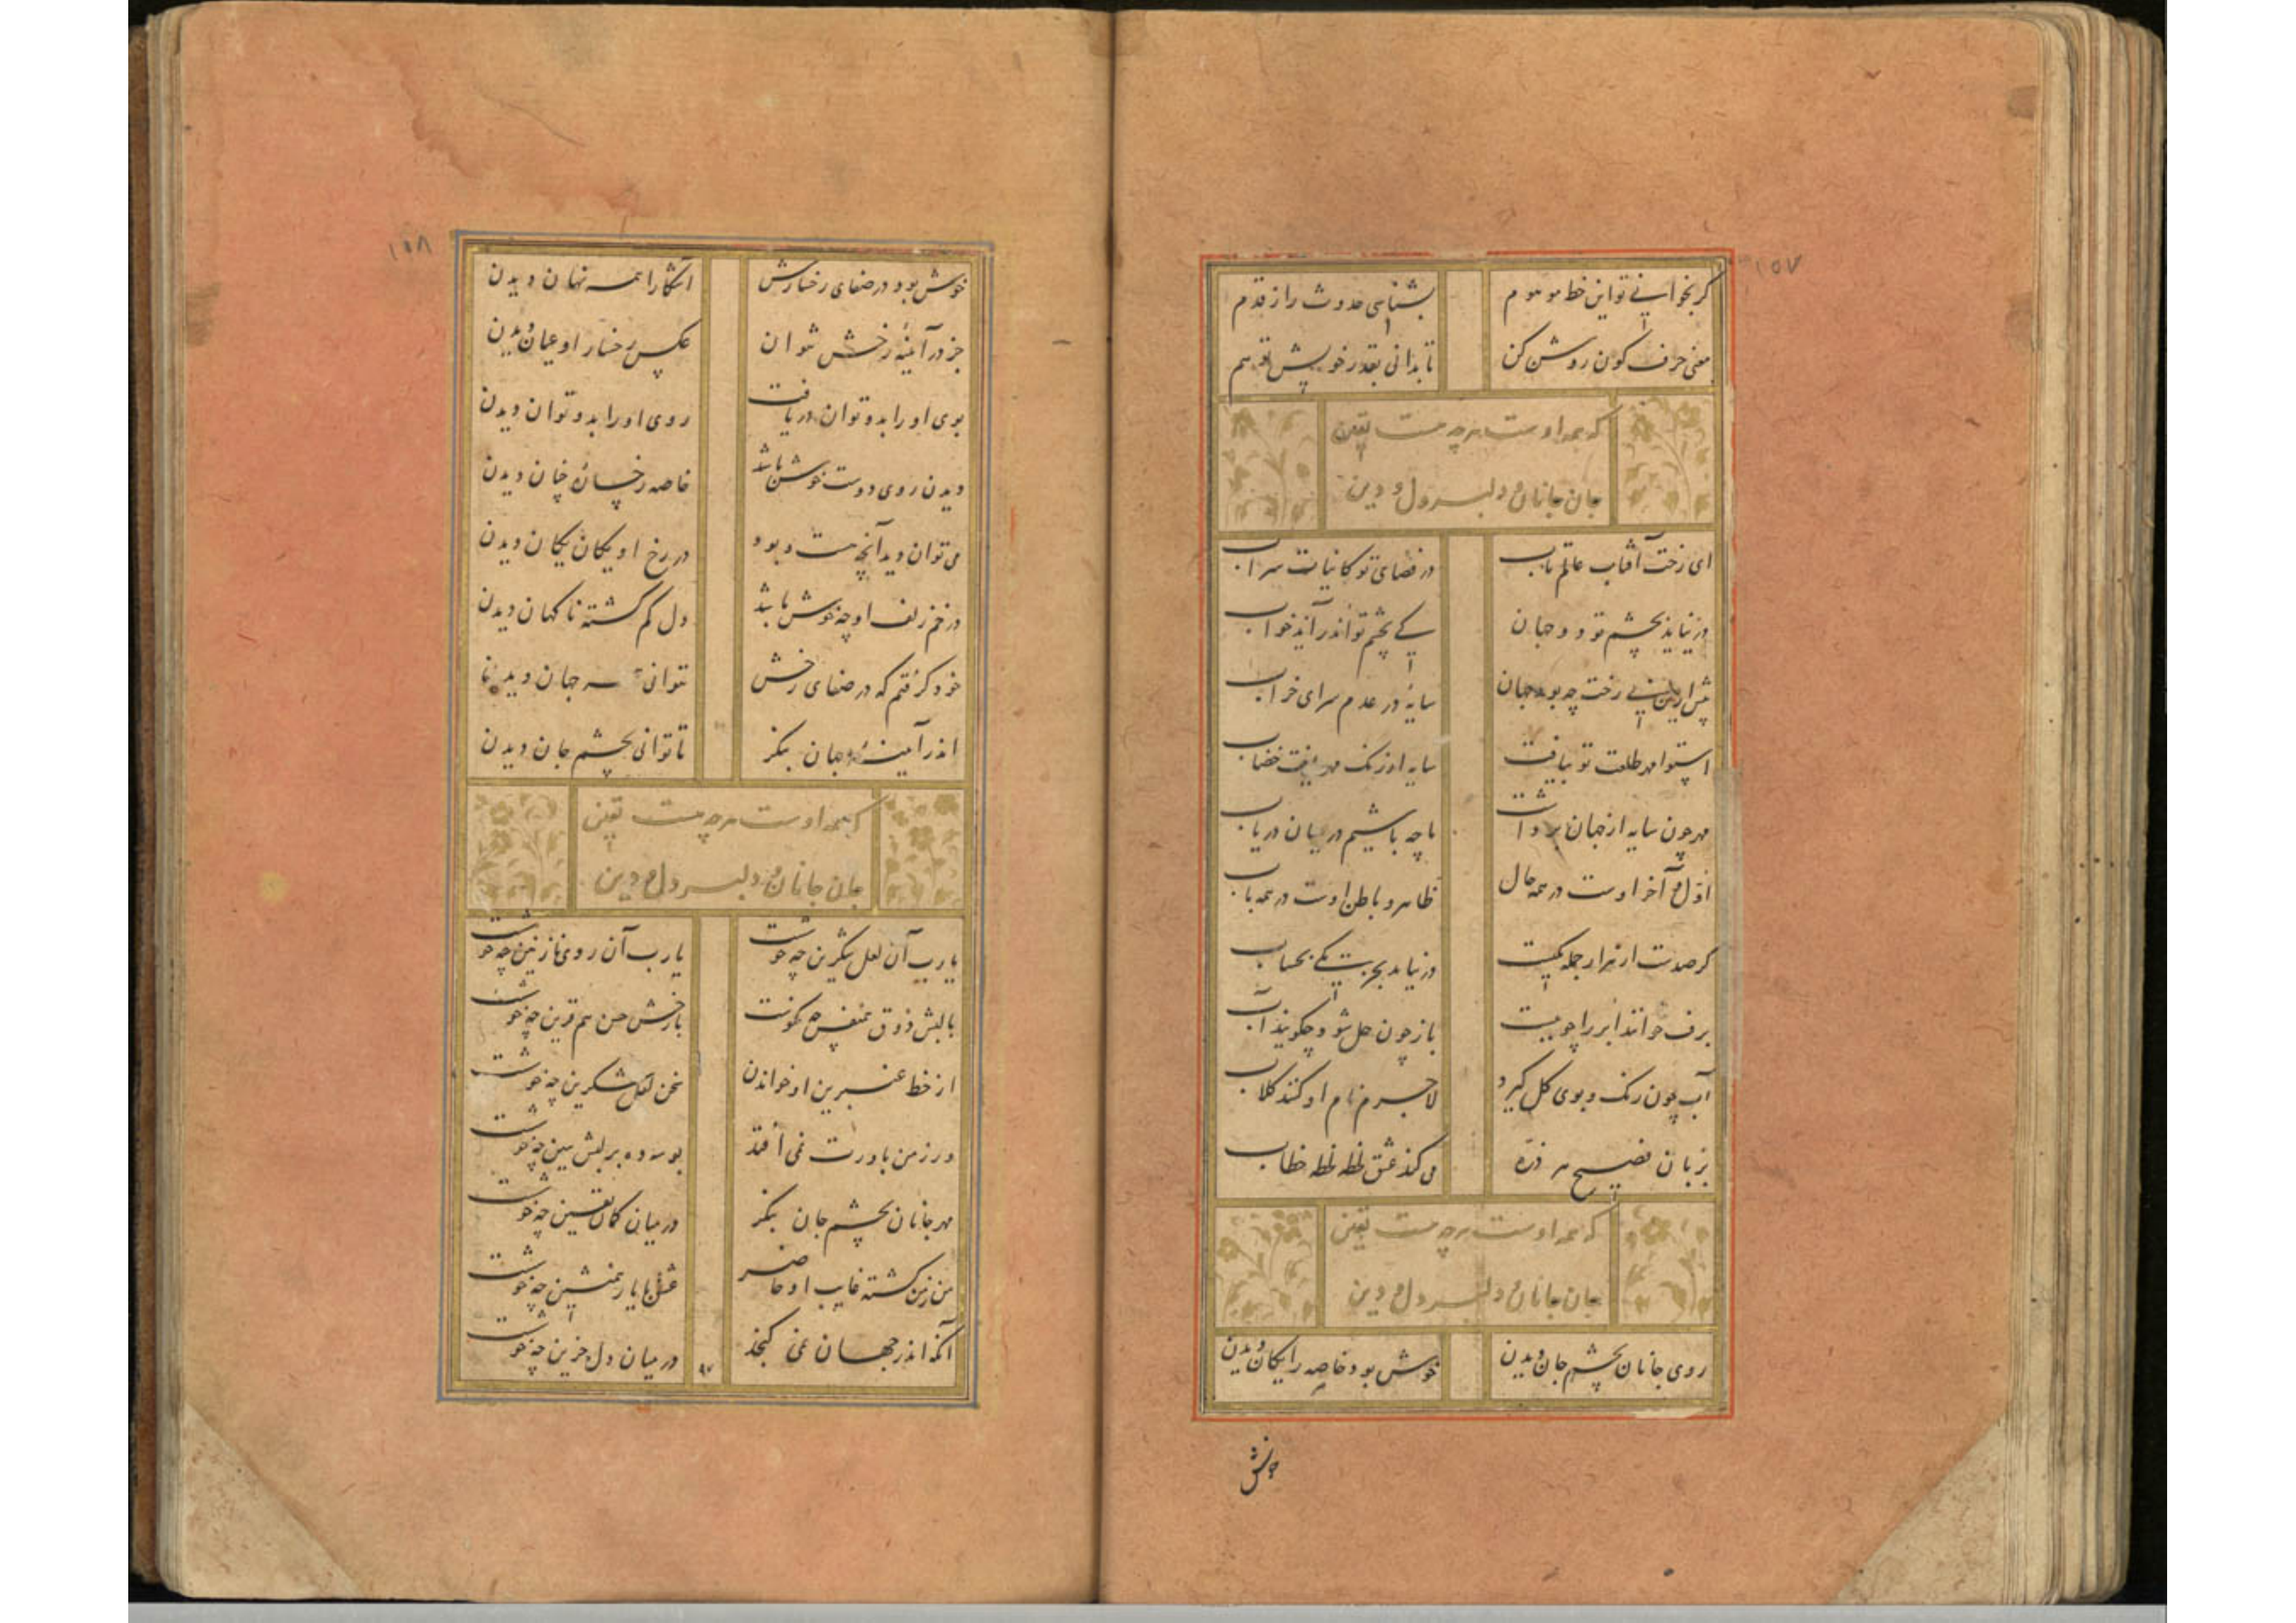 ١٥٧
گر بخوانی تو این خط موهوم بشناسی حدوث را ز قدم
معنی حرف کون روشن کن تا بدانی بقدر خویش تو هم
که همه اوست هرچه هست یقین
جان و جانان و دلبر و دل و دین
ای رخت آفتاب عالم تاب در فضای تو کاینات سراب
در نیاید بچشم تو دو جهان کی بچشم تو اندر آید خواب
پیش ازین بی رخت چه بود جهان سایهٔ در عدم سرای خراب
استوا مهر طلعت تو بیافت سایه از رنگ مهر یافت خضاب
مهر چون سایه از جهان برداشت ما چه باشیم در میان دریاب
اول و آخر اوست در همه حال ظاهر و باطن اوست در همه باب
گر صدست ار هزار جمله یکیست در نیاید بجز یکی بحساب
برف خوانند ابر را چو ببست باز چون حل شود چگویند آب
آب چون رنگ و بوی گل گیرد لاجرم نام او کنند گلاب
بزبان فصیح هر ذره می کند عشق لحظه لحظه خطاب
که همه اوست هرچه هست یقین
جان و جانان و دلبر و دل و دین
روی جانان بچشم جان دیدن خوش بود خاصه رایگان دیدن
خوش
١٥٨
خوش بود در صفای رخسارش آشکارا همه نهان دیدن
جز در آینهٔ رخش نتوان عکس رخسار او عیان دیدن
بوی او را بدو توان دریافت روی او را بدو توان دیدن
دیدن روی دوست خوش باشد خاصه رخسارهٔ چنان دیدن
می توان دید آنچه هست و بود در رخ او یکان یکان دیدن
در خم زلف او چه خوش باشد دل گم گشته ناگهان دیدن
خود گرفتم که در صفای رخش نتوانی همه جهان دیدن
اندر آیینهٔ جهان بنگر تا توانی بچشم جان دیدن
که همه اوست هرچه هست یقین
جان و جانان و دلبر و دل و دین
یا رب آن لعل شکرین چه خوشست یا رب آن روی نازنین چه خوشست
با لبش ذوق همنفس چه نکوست با رخش حسن هم قرین چه خوشست
از خط عنبرین او خواندن سخن لعل شکرین چه خوشست
ور ز من باورت نمی افتد بوسه ده بر لبش ببین چه خوشست
مهر جانان بچشم جان بنگر در میان گمان یقین چه خوشست
من ز من گشته غایب او حاضر عشق با یار همنشین چه خوشست
آنکه اندر جهان نمی گنجد در میان دل حزین چه خوشست